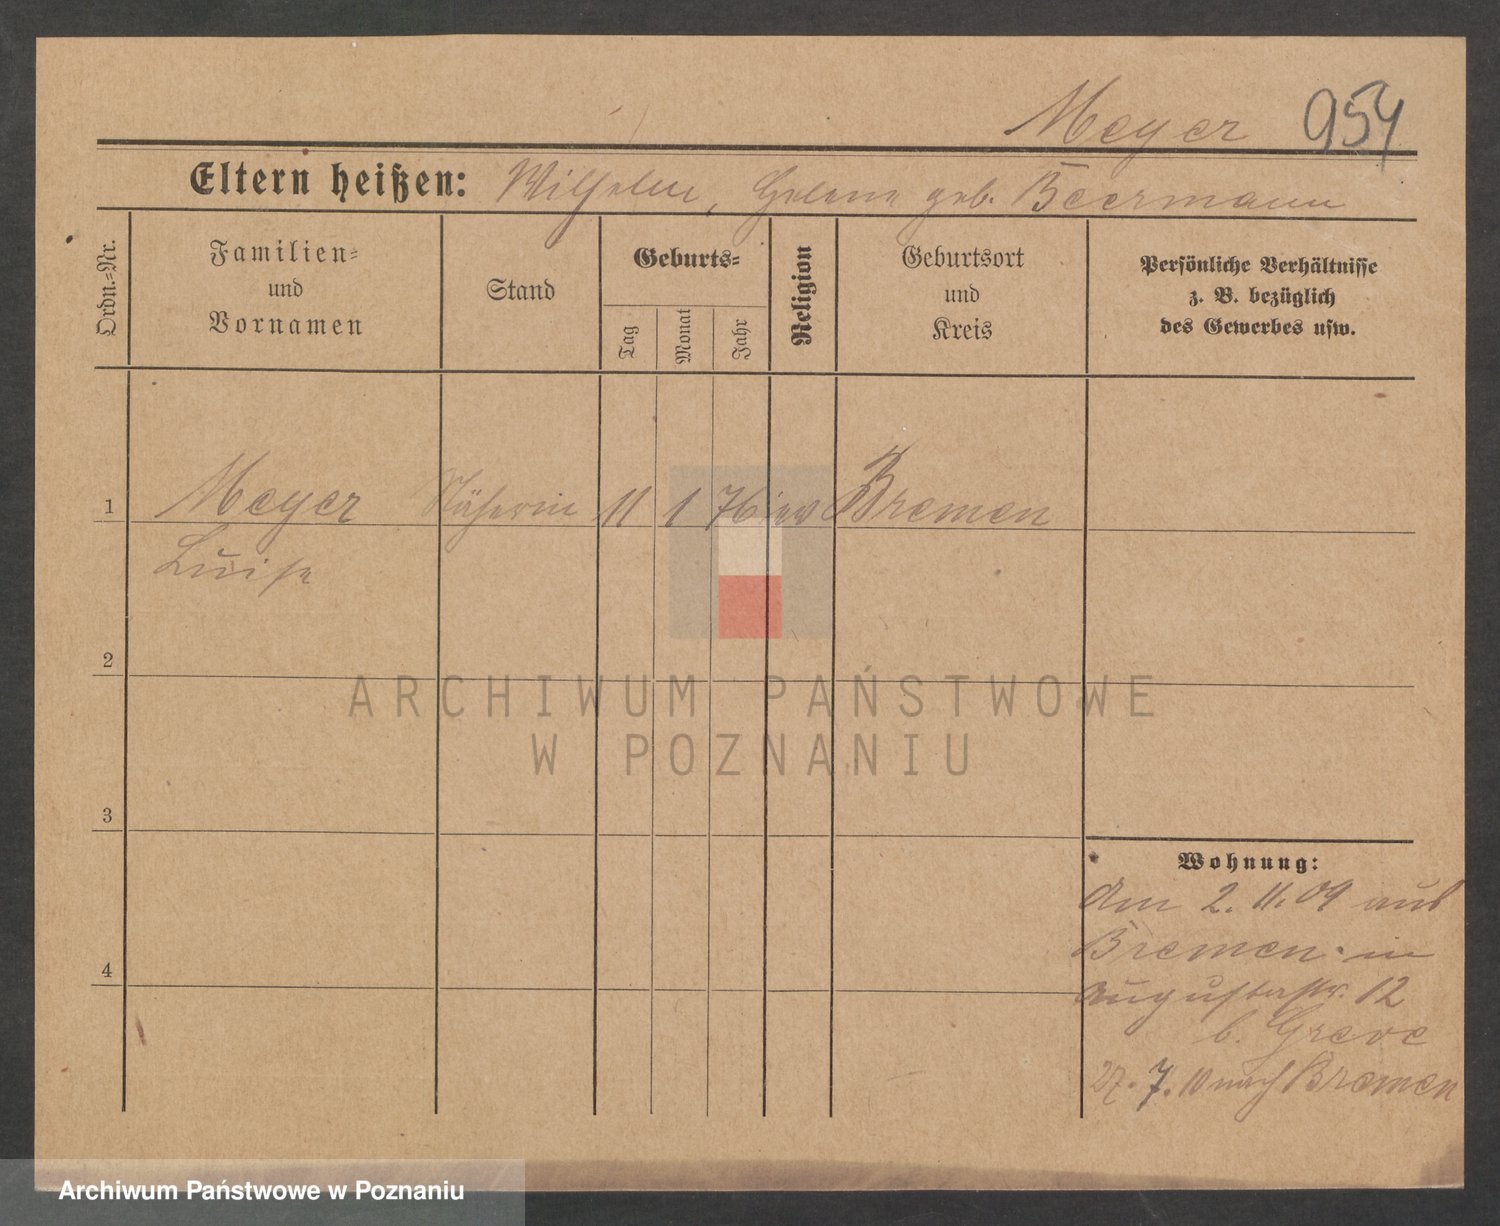 Meyer 954
Eltern heißen: Wilhelm, Helene geb. Beermann
Ordn.-Nr.
Familien-
und
Vornamen
Stand
Geburts-
Tag
Monat
Jahr
Religion
Geburtsort
und
Kreis
Persönliche Verhältnisse
z. B. bezüglich
des Gewerbes usw.
1 Meyer Näherin 11 1 76 ev Bremen
Luise
2
3
4
Wohnung:
Am 2. 11. 09 aus
Bremen in
Augustastr. 12
b. Greve
27. 7. 10 nach Bremen
ARCHIWUM PAŃSTWOWE
W POZNANIU
Archiwum Państwowe w Poznaniu